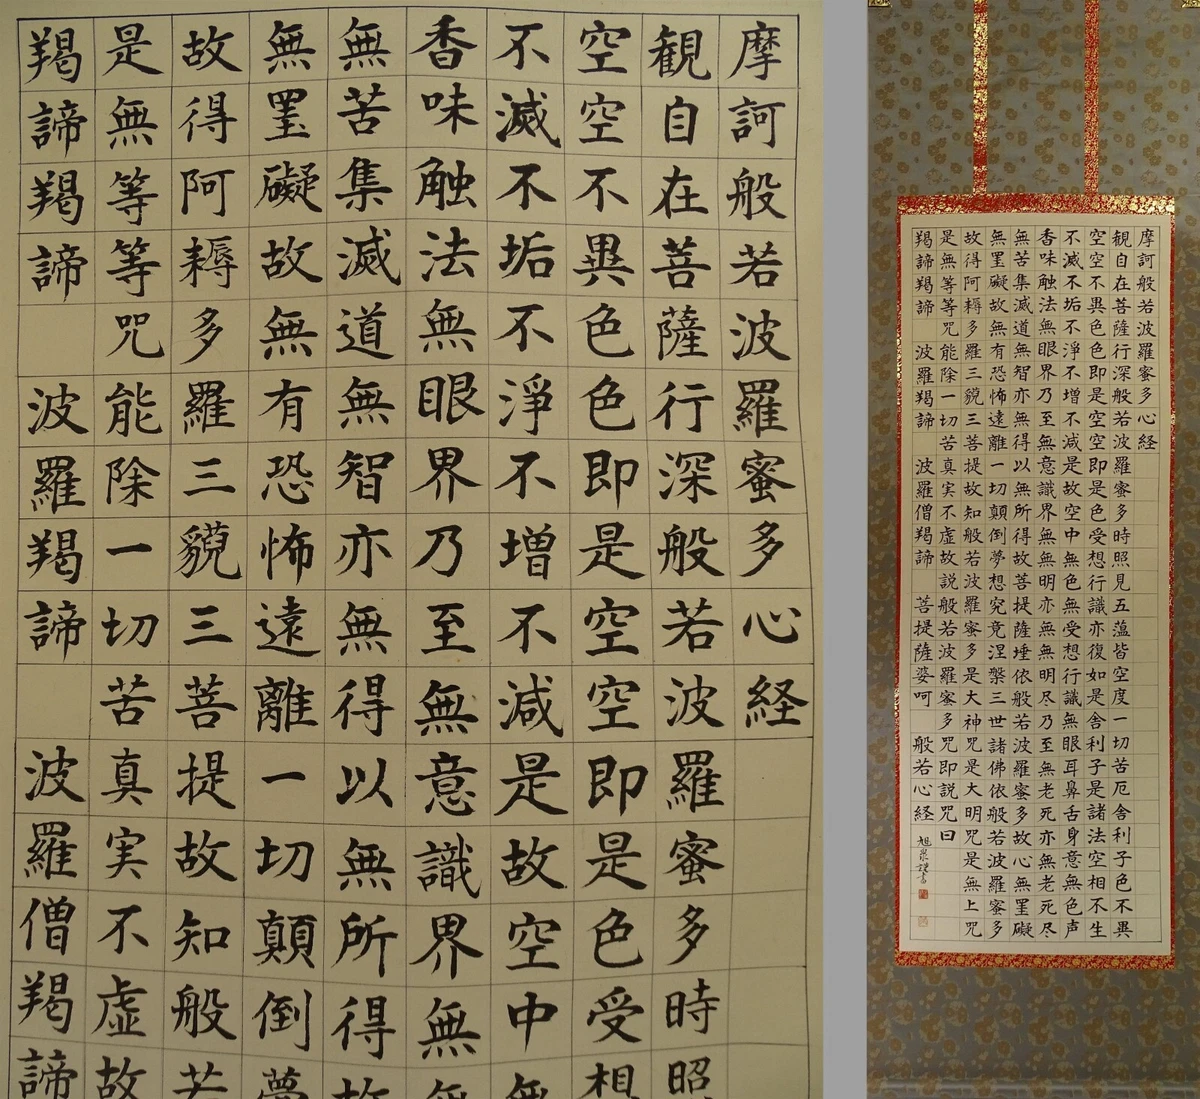 摩訶般若波羅蜜多心経
観自在菩薩行深般若波羅蜜多時照
空空不異色色即是空空即是色受想
不滅不垢不淨不増不減是故空中無
香味触法無眼界乃至無意識界無無
無苦集滅道無智亦無得以無所得故
無罣礙故無有恐怖遠離一切顛倒夢
故得阿耨多羅三藐三菩提故知般若
是無等等咒能除一切苦真実不虚故
羯諦羯諦 波羅羯諦 波羅僧羯諦
摩訶般若波羅蜜多心経
観自在菩薩行深般若波羅蜜多時照見五蘊皆空度一切苦厄舎利子色不異
空空不異色色即是空空即是色受想行識亦復如是舎利子是諸法空相不生
不滅不垢不淨不増不減是故空中無色無受想行識無眼耳鼻舌身意無色声
香味触法無眼界乃至無意識界無無明亦無無明尽乃至無老死亦無老死尽
無苦集滅道無智亦無得以無所得故菩提薩埵依般若波羅蜜多故心無罣礙
無罣礙故無有恐怖遠離一切顛倒夢想究竟涅槃三世諸佛依般若波羅蜜多
故得阿耨多羅三藐三菩提故知般若波羅蜜多是大神咒是大明咒是無上咒
是無等等咒能除一切苦真実不虚故説般若波羅蜜多咒即説咒曰
羯諦羯諦 波羅羯諦 波羅僧羯諦 菩提薩婆呵 般若心経